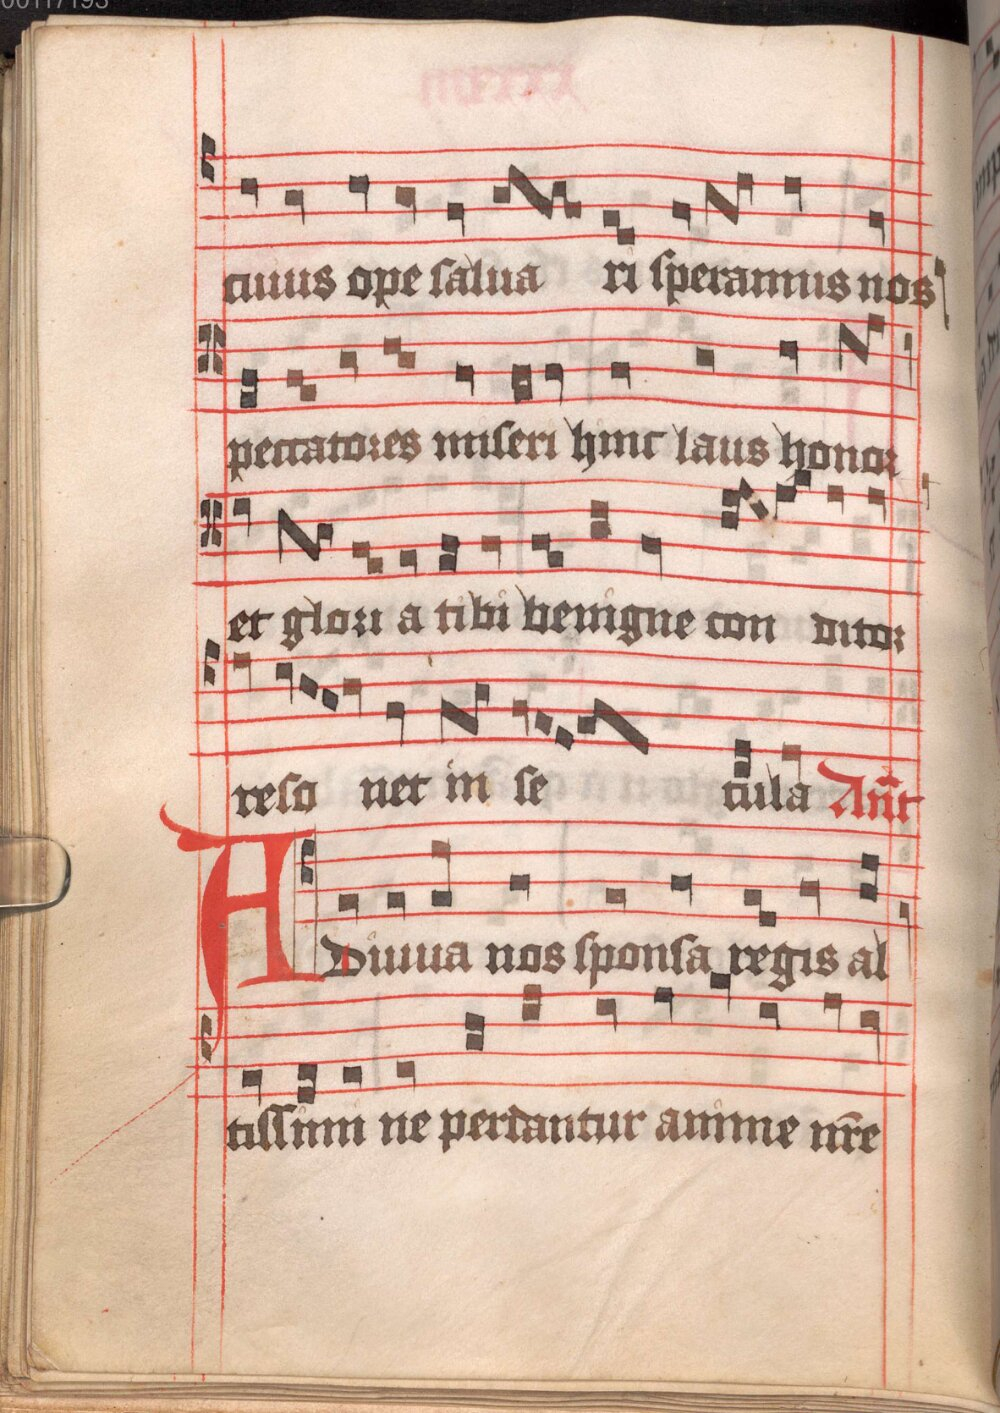 00117193
cuius ope salua ri speramus nos
peccatores miseri hinc laus honor
et glori a tibi benigne con ditor
reso net in se cula Añt
ADiuua nos sponsa regis al
tissimi ne perdantur anime nr̄e